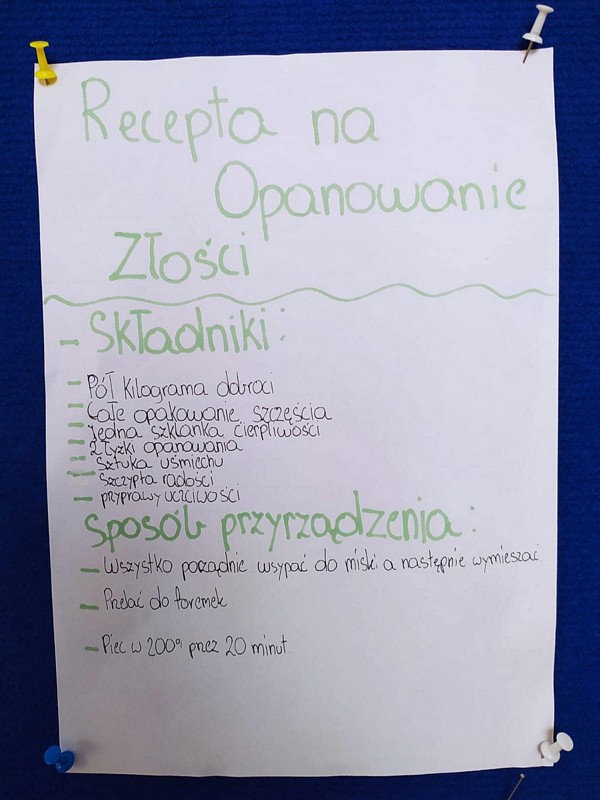 Recepta na
Opanowanie
Złości
- Składniki:
- Pół kilograma dobroci
- Całe opakowanie szczęścia
- Jedna szklanka cierpliwości
- 2 łyżki opanowania
- Sztuka uśmiechu
- szczypta radości
- przyprawy uczciwości
Sposób przyrządzenia:
- Wszystko porządnie wsypać do miski a następnie wymieszać.
- Przelać do foremek
- Piec w 200° przez 20 minut.